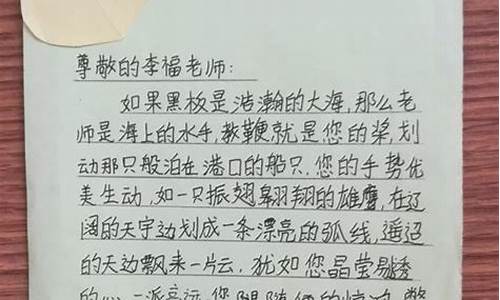 尊敬的李福老师：
如果黑板是浩瀚的大海,那么老
师是海上的水手,教鞭就是您的桨,划
动那只般泊在港口的船只,您的手势优
美生动,如一只振翅翱翔的雄鹰,在辽
阔的天宇边划成一条漂亮的弧线,遥远
的天边飘来一片云,犹如您晶莹剔透
的心,一派高远